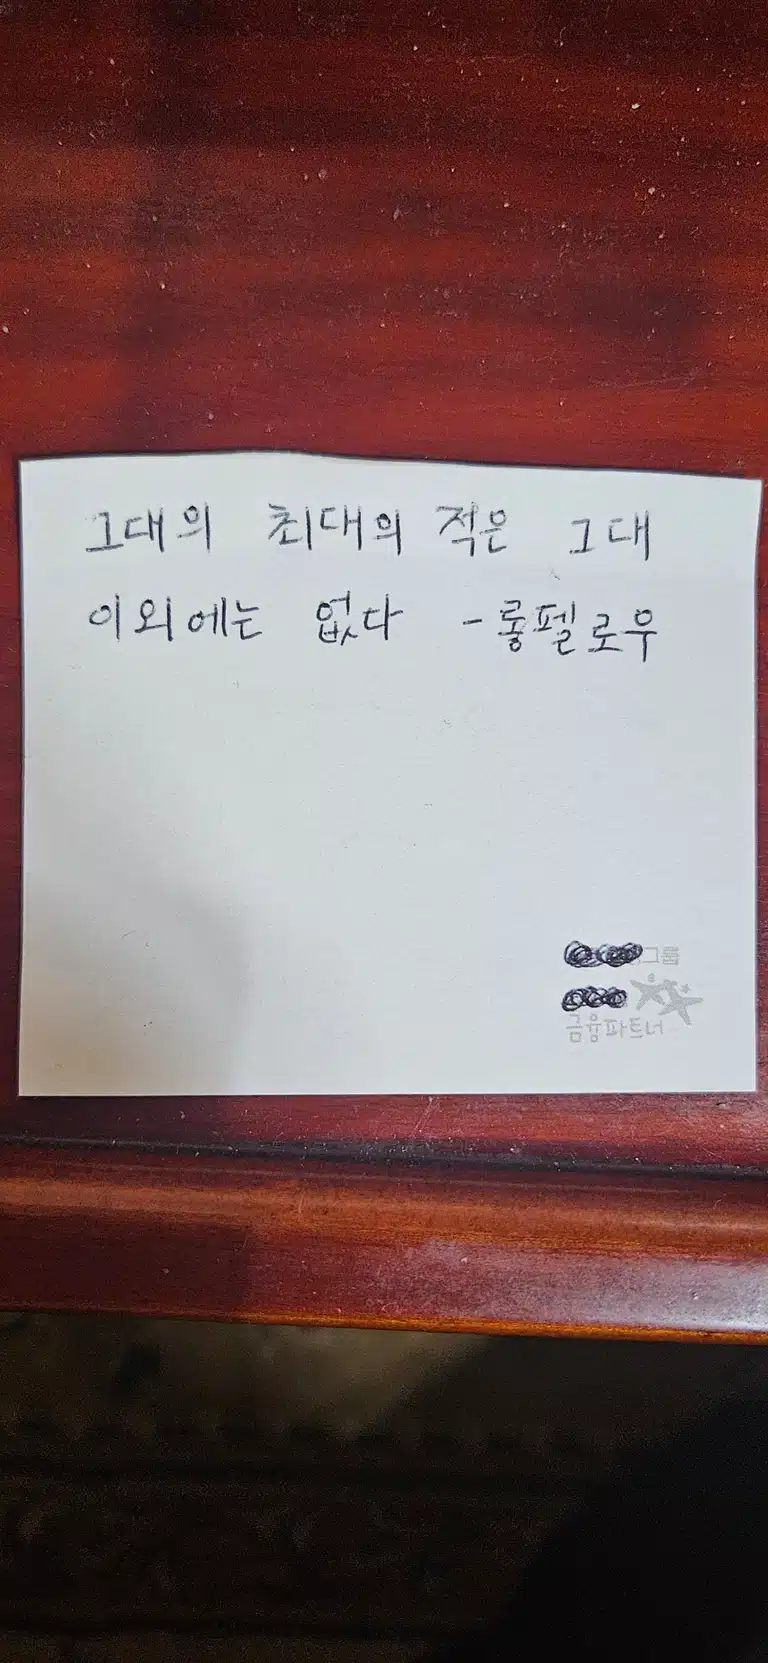 그대의 최대의 적은 그대
이외에는 없다 - 롱펠로우
그룹
금융파트너